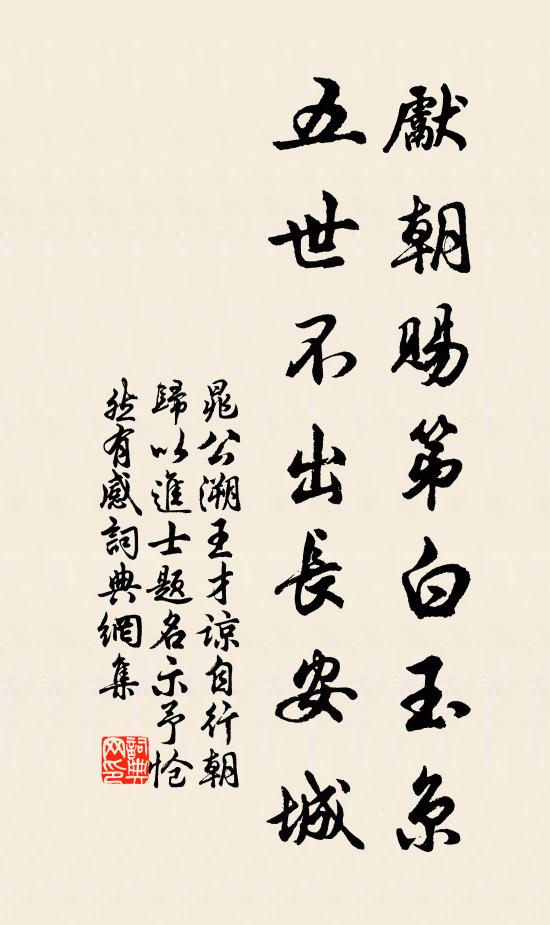 獻朝賜第白玉京
五世不出長安城
晁公溯王才諒自行朝
歸以進士題名示予愴
然有感詞典網集
詞典網印